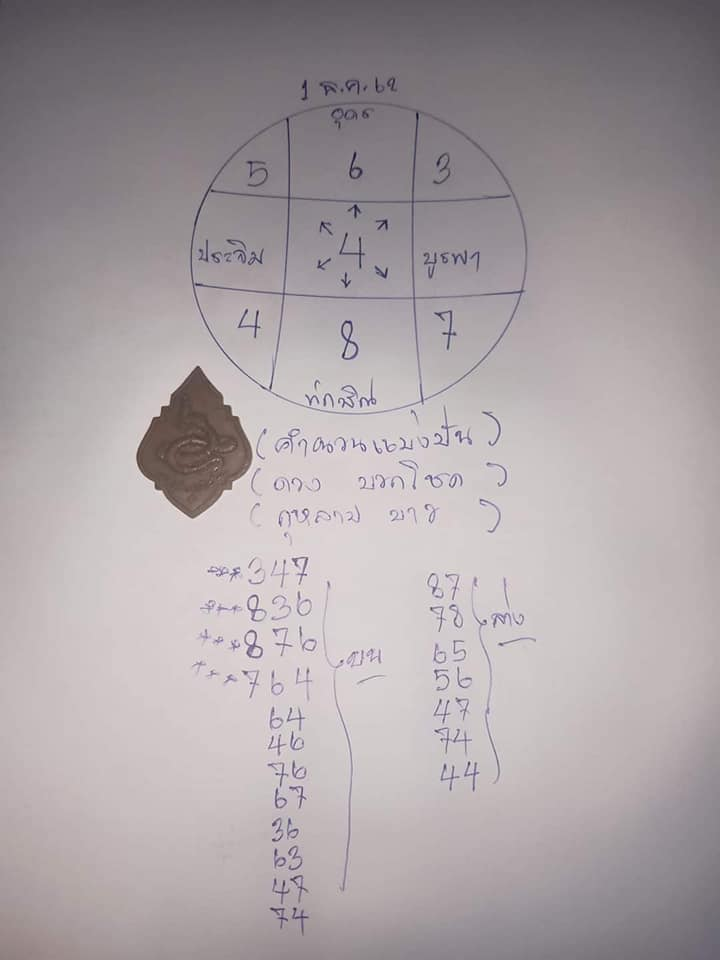 1 ธ.ค. 62
อุดร
5 6 3
ประจิม 4 บูรพา
4 8 7
ทักษิณ
(คำนวนแบ่งปัน)
(ดวง บวกโชค)
(กุหลาบ ขาว)
***347
***836
***876
***764
64
46
76
67
36
63
47
74
บน
87
78
65
56
47
74
44
ล่าง